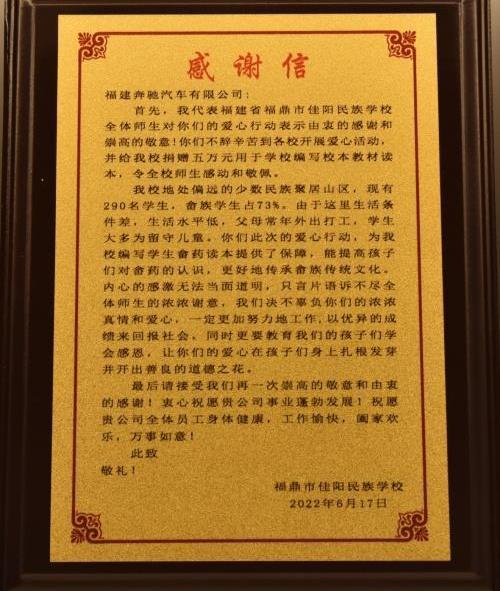 感谢信
福建奔驰汽车有限公司：
首先，我代表福建省福鼎市佳阳民族学校
全体师生对你们的爱心行动表示由衷的感谢和
崇高的敬意！你们不辞辛苦到各校开展爱心活动，
并给我校捐赠五万元用于学校编写校本教材读
本，令全校师生感动和敬佩。
我校地处偏远的少数民族聚居山区，现有
290名学生，畲族学生占73%。由于这里生活条
件差，生活水平低，父母常年外出打工，学生
大多为留守儿童。你们此次的爱心行动，为我
校编写学生畲药读本提供了保障，能提高孩子
们对畲药的认识，更好地传承畲族传统文化。
内心的感激无法当面道明，只言片语诉不尽全
体师生的浓浓谢意，我们决不辜负你们的浓浓
真情和爱心，一定更加努力地工作，以优异的成
绩来回报社会。同时更要教育我们的孩子们学
会感恩，让你们的爱心在孩子们身上扎根发芽
并开出善良的道德之花。
最后请接受我们再一次崇高的敬意和由衷
的感谢！衷心祝愿贵公司事业蓬勃发展！祝愿
贵公司全体员工身体健康，工作愉快，阖家欢
乐，万事如意！
此致
敬礼！
福鼎市佳阳民族学校
2022年6月17日